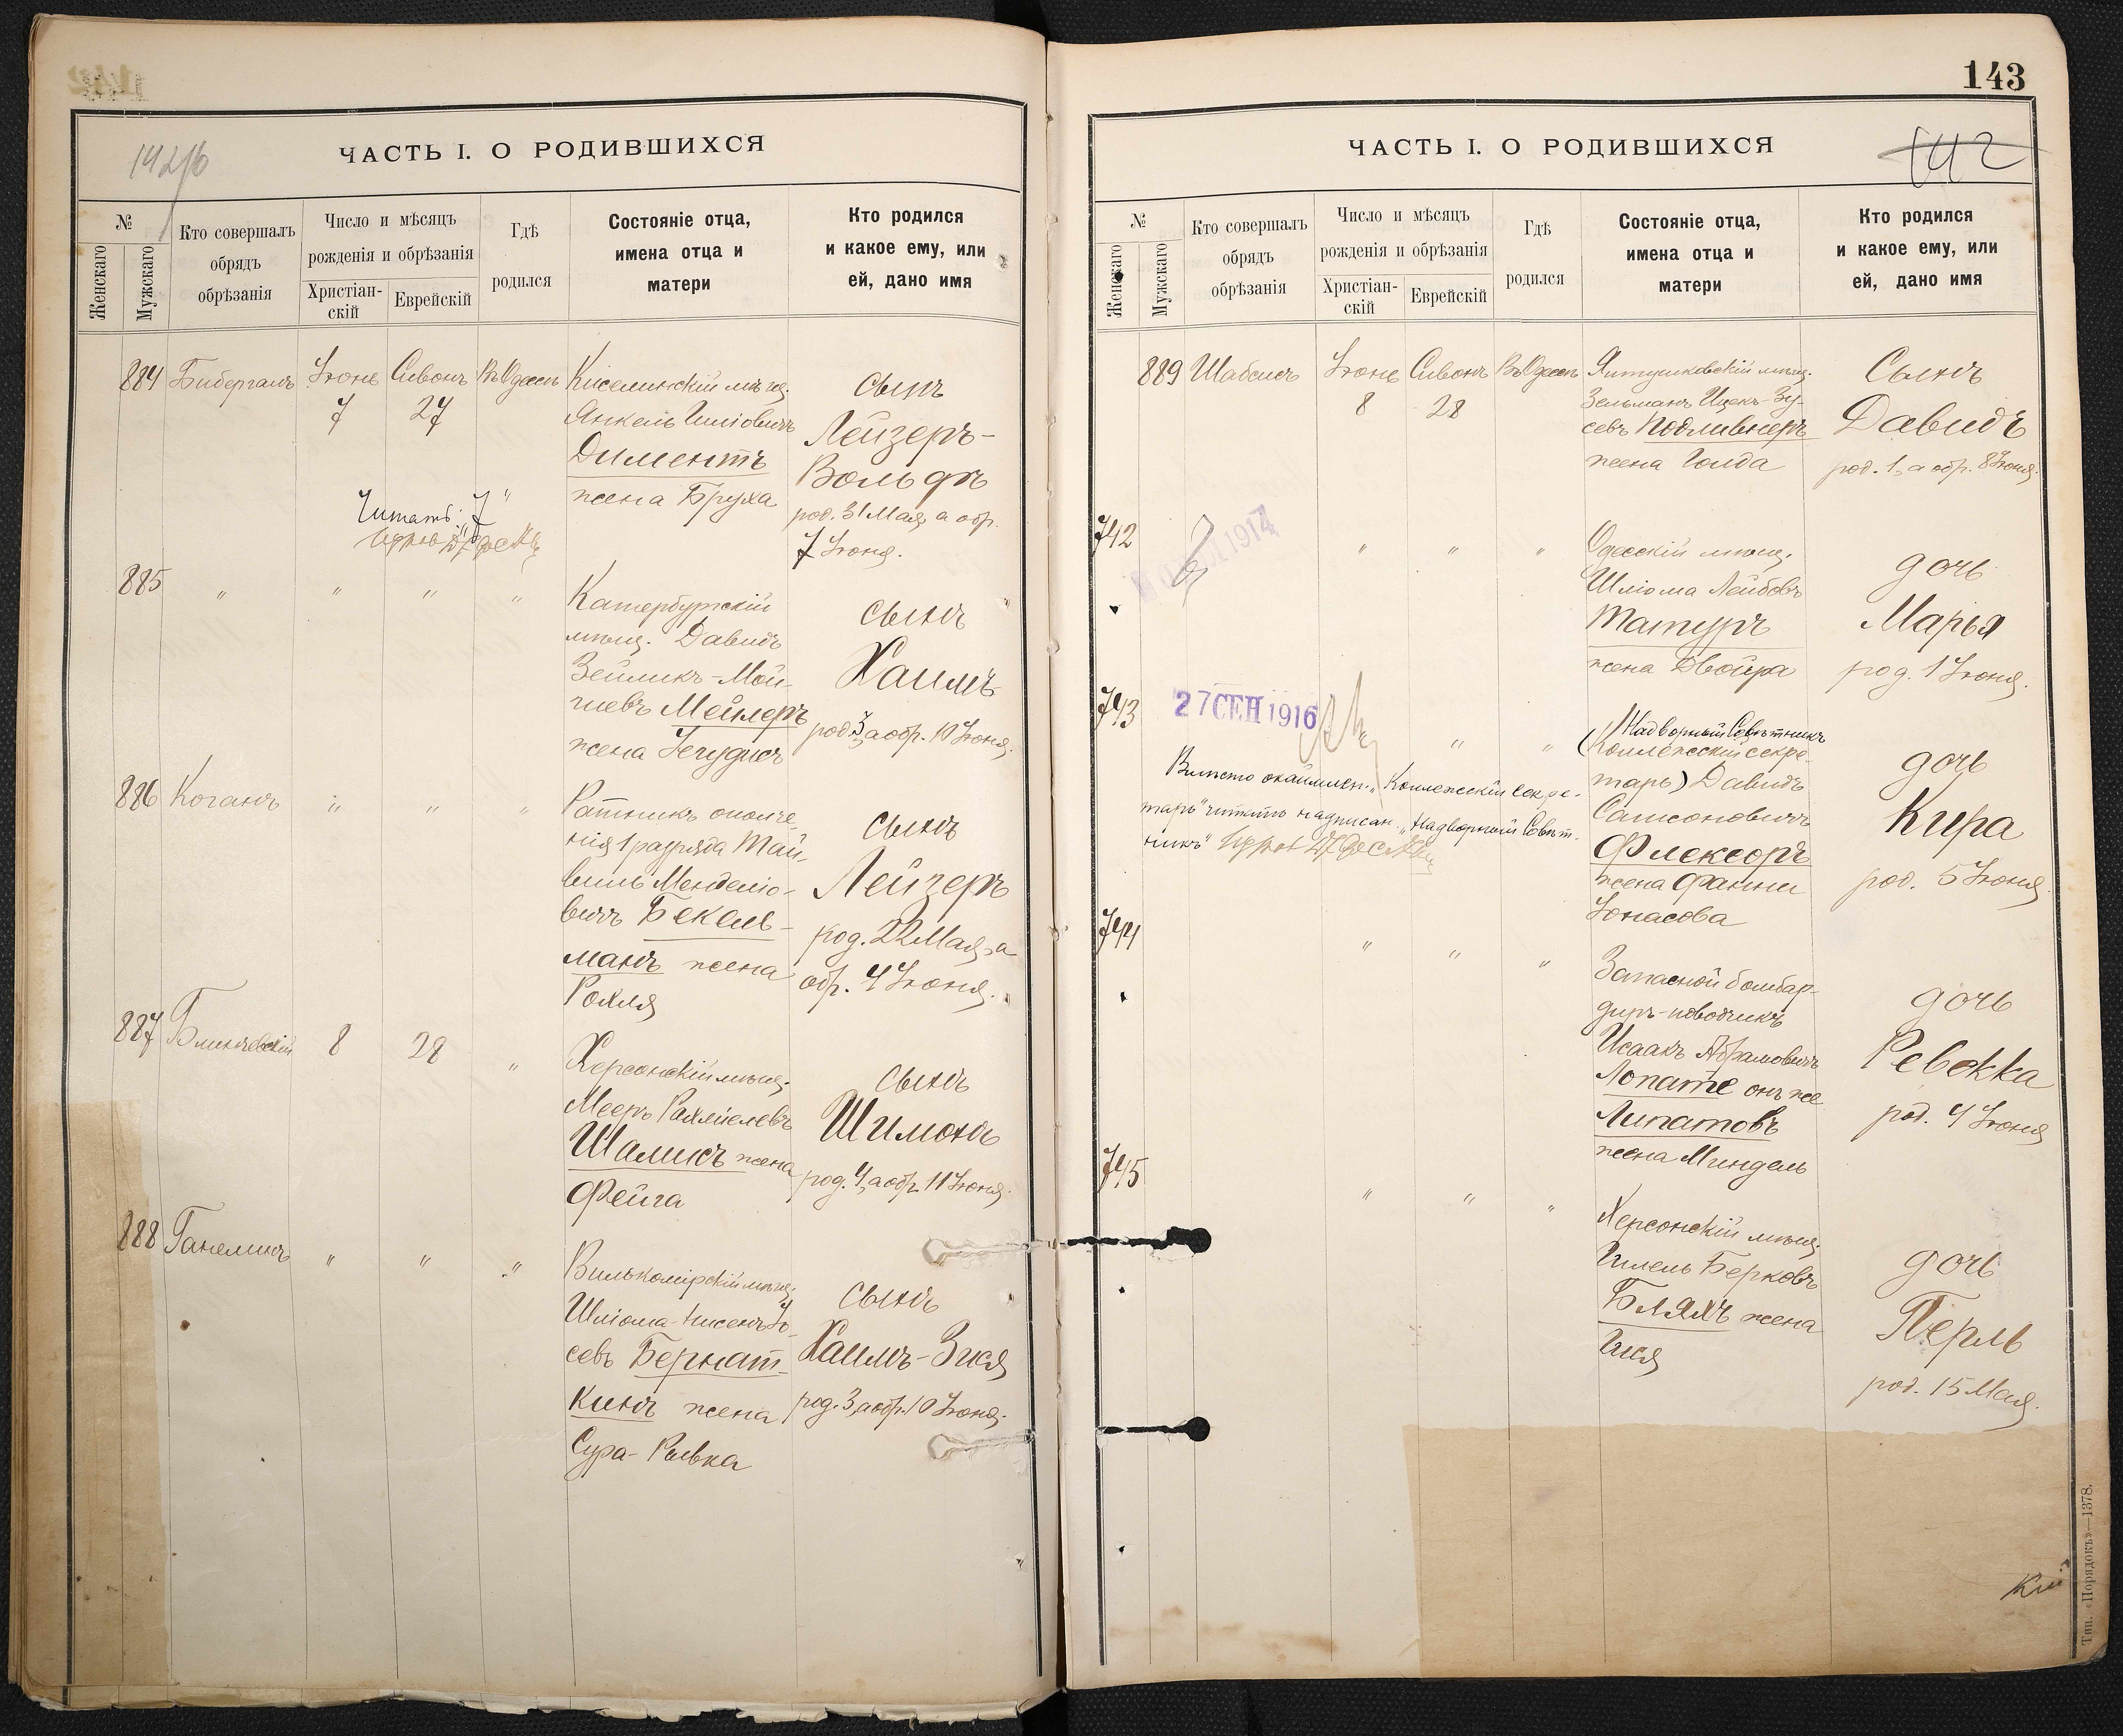 142/б
ЧАСТЬ I. О РОДИВШИХСЯ
№
Женскаго
Мужескаго
Кто совершалъ
обрядъ
обрѣзанія
Число и мѣсяцъ
рожденія и обрѣзанія
Христіан-
скій
Еврейскій
Гдѣ
родился
Состояніе отца,
имена отца и
матери
Кто родился
и какое ему, или
ей, дано имя
884 Бибергалъ Іюнь Сивонъ Въ Одессѣ
7 27
Киселинскій мѣщ.
Янкель
Диментъ
жена Бруха
сынъ
Лейзеръ-
Вольфъ
род. 31 Мая, а обр.
7 Іюня.
Читать: "7"
885 " " " "
Катербургскій
мѣщ. Давидъ
Зейликъ-Мой-
шевъ Мейлеръ
жена
сынъ
Хаимъ
род. 3, а обр. 10 Іюня.
886 Коганъ " " "
Ратникъ ополче-
нія 1 разряда Май-
Менделіо-
вичъ Бекель-
манъ жена
Рохля
сынъ
Лейзеръ
род. 22 Мая, а
обр. 4 Іюня.
887 Блинчевскій 8 28 "
Херсонскій мѣщ.
Мееръ Рахмielевъ
Шамисъ жена
Фейга
сынъ
Шимонъ
род. 4, а обр. 11 Іюня.
888 Ганелинъ " " "
Вилькомірскій мѣщ.
Шліома-Нисенъ Іо-
севъ Бернат-
кинъ жена
Сура-Ривка
сынъ
Хаимъ-Зися
род. 3, а обр. 10 Іюня.
143
142
ЧАСТЬ I. О РОДИВШИХСЯ
№
Женскаго
Мужескаго
Кто совершалъ
обрядъ
обрѣзанія
Число и мѣсяцъ
рожденія и обрѣзанія
Христіан-
скій
Еврейскій
Гдѣ
родился
Состояніе отца,
имена отца и
матери
Кто родился
и какое ему, или
ей, дано имя
889 Шабсисъ Іюнь Сивонъ Въ Одессѣ
8 28
Ялтушковскій мѣщ.
Зельманъ Ицекъ-Зу-
севъ Подливнеръ
жена Голда
Сынъ
Давидъ
род. 1, а обр. 8 Іюня.
742 " " "
1914
Одесскій мѣщ.
Шліома Лейбовъ
Татуръ
жена Двойра
дочь
Марья
род. 1 Іюня.
743 " "
27 СЕН 1916
Надворный Совѣтникъ
(Коллежскій секре-
тарь) Давидъ
Самсоновичъ
Флексоръ
жена Фанни
Іонасова
дочь
Кира
род. 5 Іюня.
Вмѣсто окаймлен. "Коллежскій Секре-
тарь" читать надписан. "Надворный Совѣт-
никъ"
744 " " "
Запасной бомбар-
диръ-наводчикъ
Исаакъ Абрамовичъ
Лопате онъ же
Липатовъ
жена Миндель
дочь
Ревекка
род. 4 Іюня
745 " " "
Херсонскій мѣщ.
Гилель Берковъ
Бляхъ жена
дочь
Перль
род. 15 Мая.
Тип. «Порядокъ»—1378.